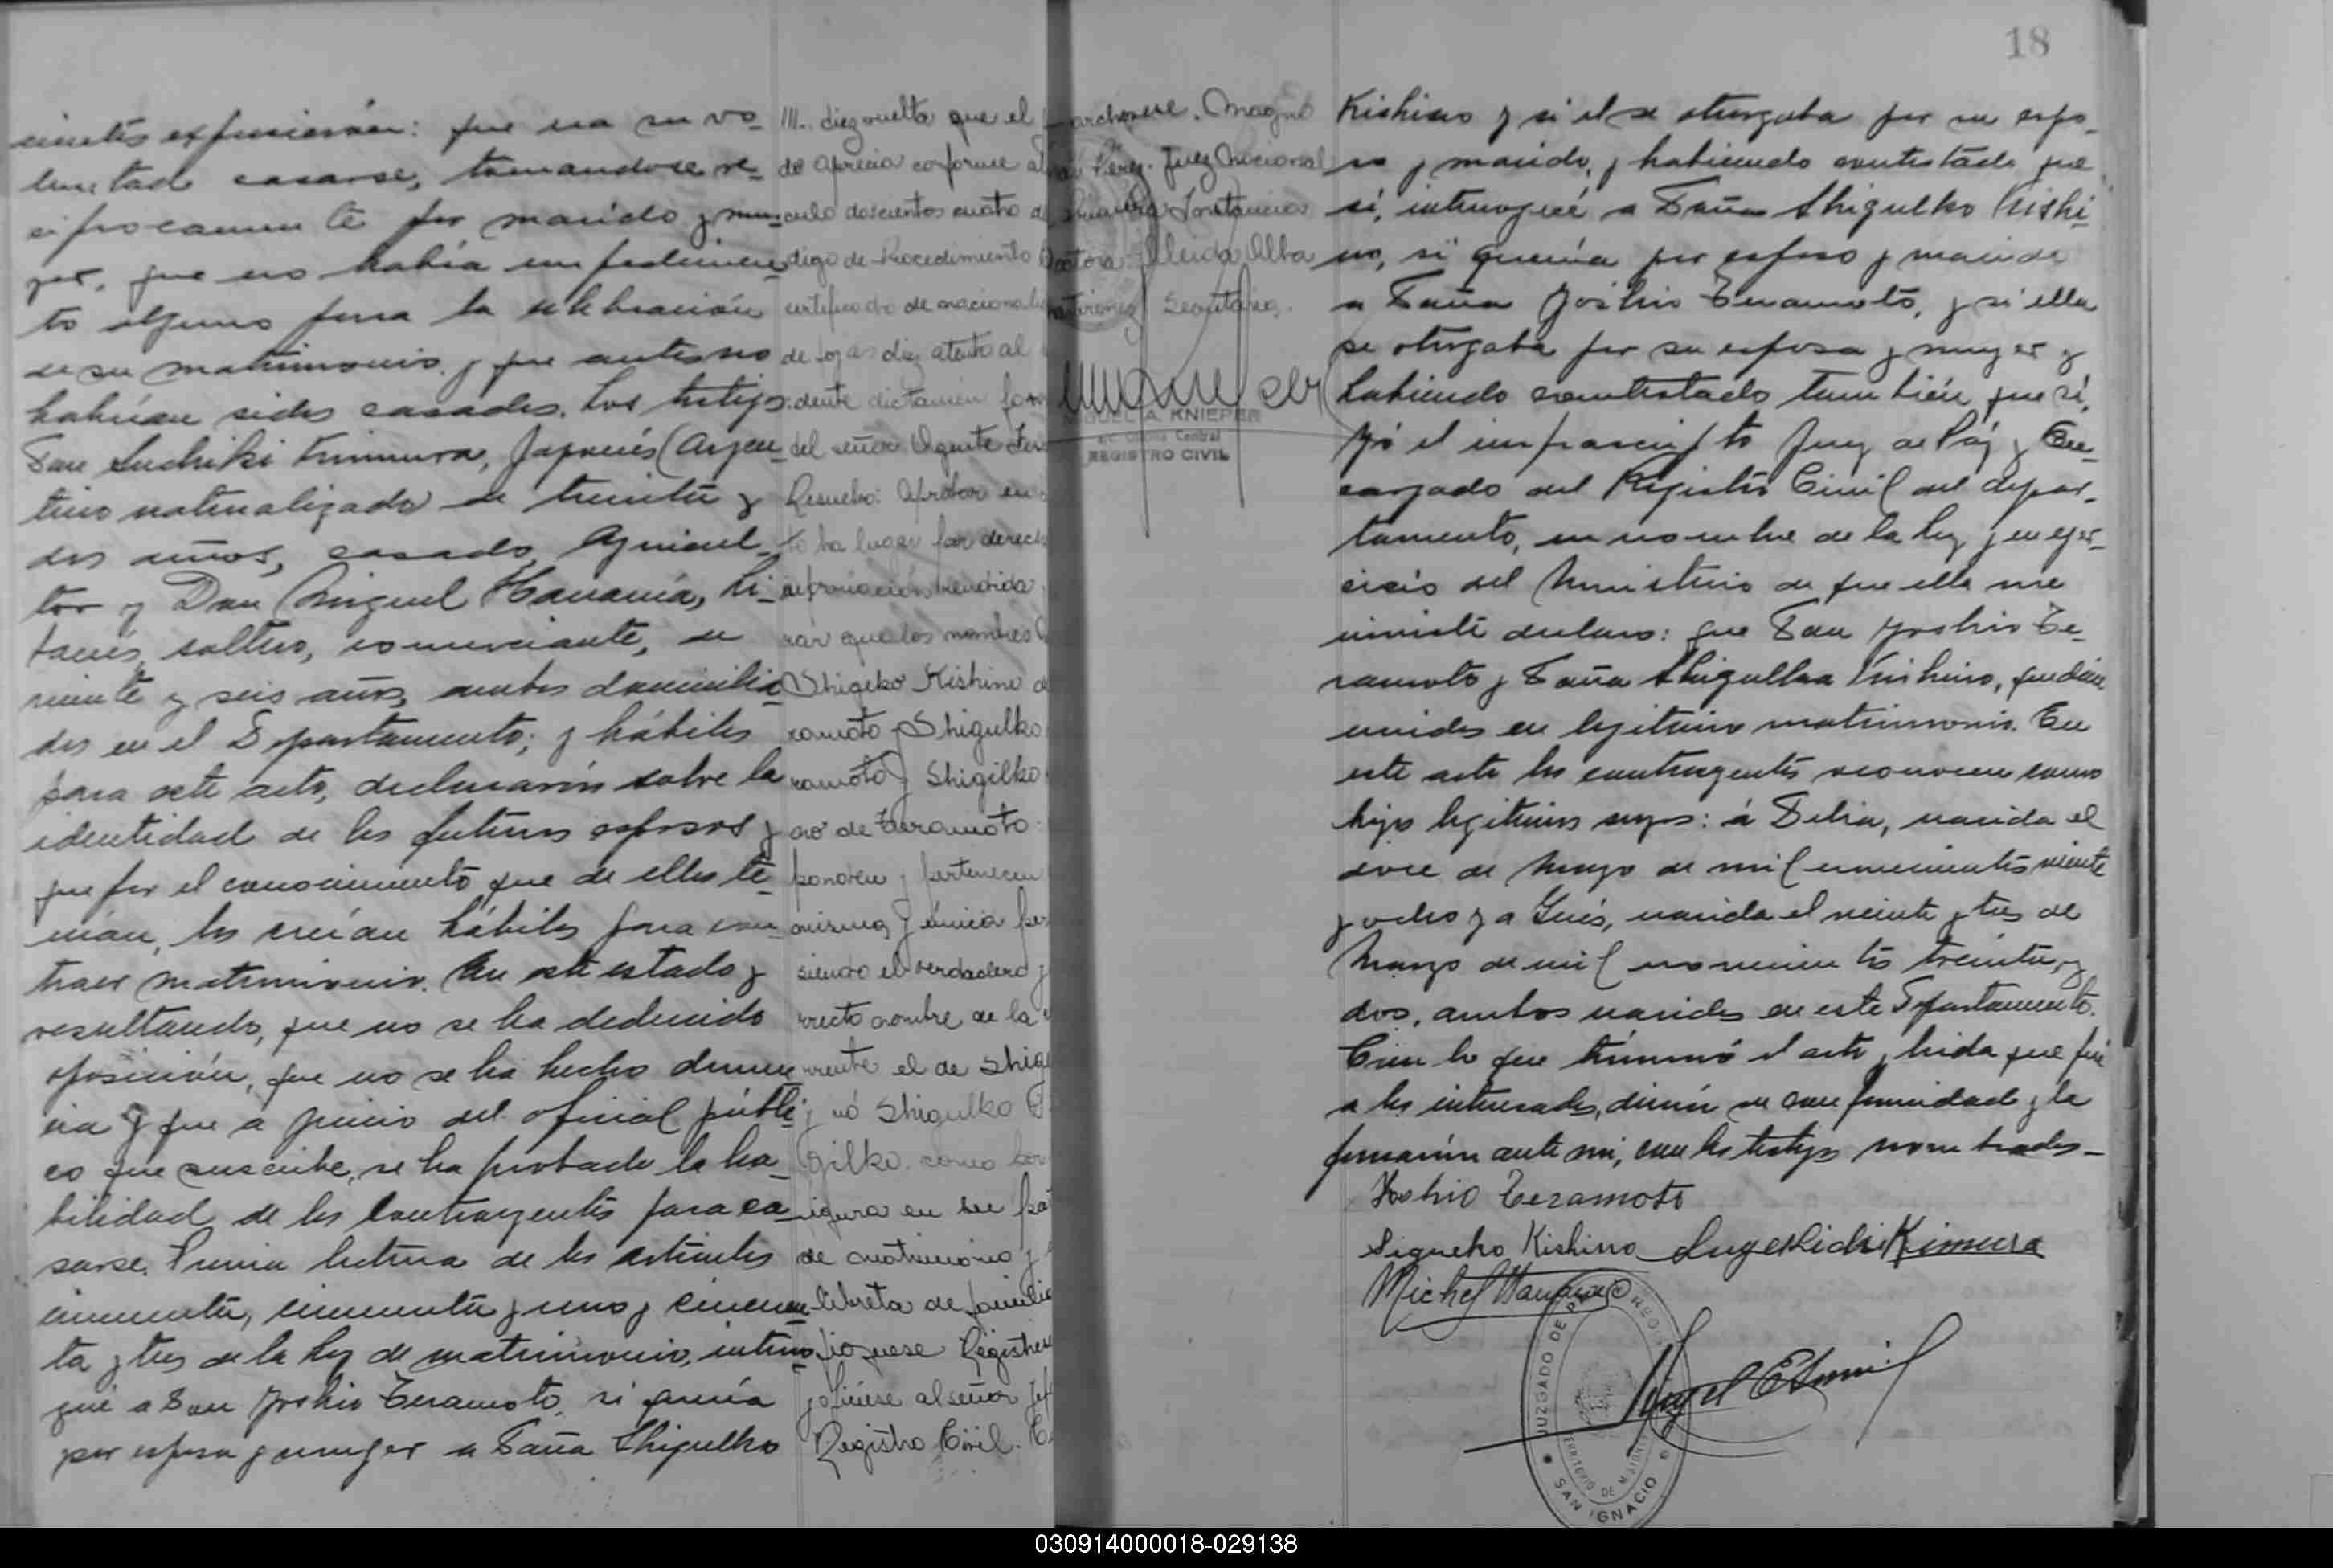 18
nientes expusieron: que era su vo-
luntad casarse, tomandose re-
ciprocamente por marido y mu-
jer, que no había impedimen-
to alguno para la celebración
de su matrimonio y que antes no
habían sido casados. Los testigos
Don Suchiki Kimmura, Japonés (Argen-
tino naturalizado de treinta y
dos años, casado, Agricul-
tor y Don Miguel Hanania, Li-
banés, soltero, comerciante, de
veinte y seis años, ambos domicilia-
dos en el Departamento; y hábiles
para este acto, declararon sobre la
identidad de los futuros esposos y
que por el conocimiento que de ellos te-
nian, los creían hábiles para con-
traer matrimonio. En este estado y
resultando, que no se ha deducido
oposición, que no se ha hecho denun-
cia y que a juicio del oficial públi-
co que suscribe, se ha probado la ha-
bilidad de los contrayentes para ca-
sarse. Previa lectura de los artículos
cincuenta, cincuenta y uno y cincuen-
ta y tres de la ley de matrimonio, interro-
gué a Don Yoshio Teramoto, si quería
por esposa y mujer a Doña Shigulko
III. diez vuelta que el
do aprecia conforme al
culo doscientos cuatro d
digo de Procedimiento
certificado de nacionali
de fojas diez atento al
dente dictamen
del señor Agente
Resuelvo: Aprobar en
to ha lugar por derech
información rendida
rar que los nombres
Shigeko Kishino d
ramoto, Shigulko
ramoto y Shigilko
no de Teramoto
ponden y pertenecen
misma y única per
siendo el verdadero y
rrecto nombre de la
rrente el de Shig
y nó Shigulko
gilko. como
figura en su
de matrimonio y
libreta de familia
fiquese Regístrese
y ofíciese al señor Jef
Registro Civil.
archonese. Magno
Perez. Juez Nacional
Primera Instancia
Doctora Alba
Martinez Secretaria.
MIGUEL A. KNIEPER
Central
REGISTRO CIVIL
Kishino y si él se otorgaba por su espo-
so y marido, y habiendo contestado que
sí, interrogué a Doña Shigulko Kishi-
no, si quería por esposo y marido
a Doña Yoshio Teramoto, y si ella
se otorgaba por su esposa y mujer y
habiendo contestado también que sí,
yo el infrascripto Juez de Páz y En-
cargado del Registro Civil del depar-
tamento, en nombre de la ley y en ejer-
cicio del Ministerio de que ella me
inviste declaro: que Don Yoshio Te-
ramoto y Doña Shigulka Kishino, quedan
unidos en legitimo matrimonio. En
este acto los contrayentes reconocen como
hijos legitimos suyos: á Delia, nacida el
doce de Mayo de mil novecientos veinte
y ocho y a Inés, nacida el veinte y tres de
Marzo de mil novecientos treinta y
dos, ambos nacidos en este Departamento.
Con lo que terminó el acto, leida que fué
a los interesados, dieron su conformidad y la
firmaron ante mi, con los testigos nombrados -
Yoshio Teramoto
Sigueko Kishino Sugekichi Kimura
Michel Hanania
JUZGADO DE PAZ
TERRITORIO DE MISIONES
SAN IGNACIO
030914000018-029138